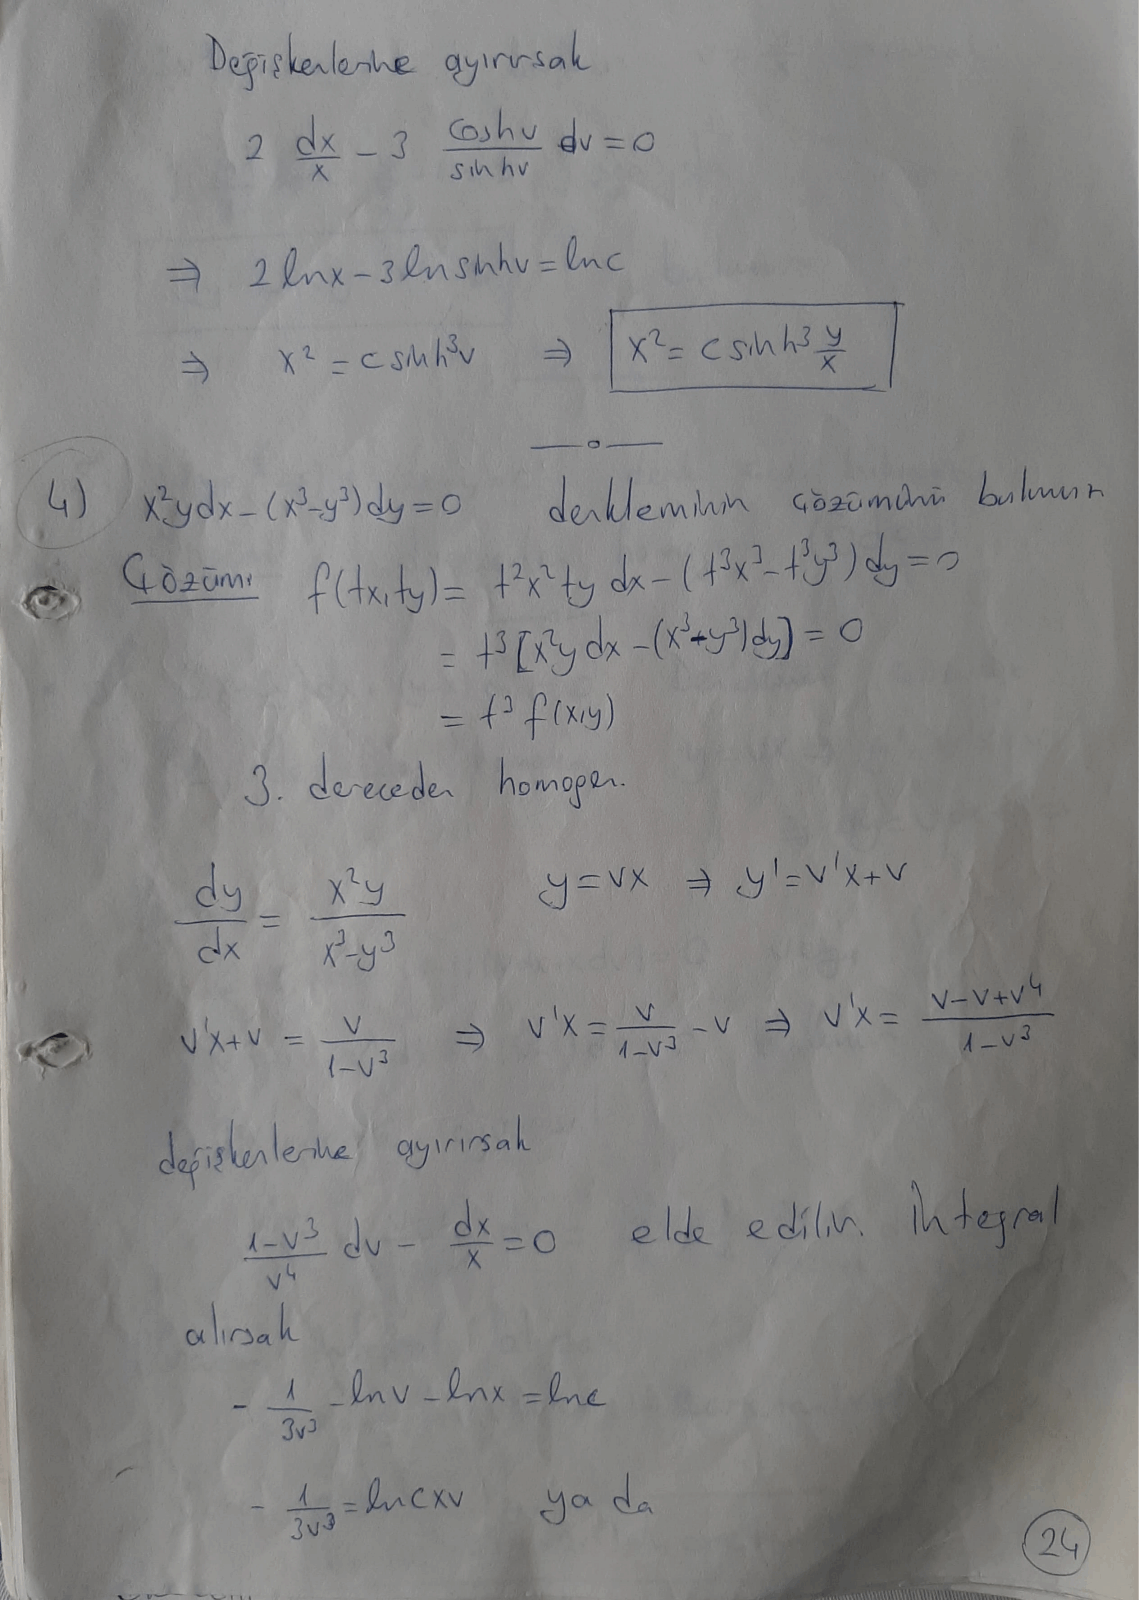 Değişkenlerine ayırırsak
2 dx/x - 3 coshv/sinhv dv = 0
⇒ 2lnx - 3lnsinhv = lnc
⇒ x² = c sinh³v ⇒ x² = c sinh³ y/x
4) x²ydx - (x³-y³)dy = 0 denkleminin çözümünü bulunuz
Çözüm: f(tx,ty) = t²x²ty dx - (t³x³ - t³y³)dy = 0
= t³[x²y dx - (x³+y³)dy] = 0
= t³ f(x,y)
3. dereceden homogen.
dy/dx = x²y/x³-y³ y = vx ⇒ y' = v'x+v
v'x+v = v/1-v³ ⇒ v'x = v/1-v³ - v ⇒ v'x = v-v+v⁴/1-v³
değişkenlerine ayırırsak
1-v³/v⁴ dv - dx/x = 0 elde edilir. İntegral
alırsak
- 1/3v³ - lnv - lnx = lnc
- 1/3v³ = lncxv ya da
24